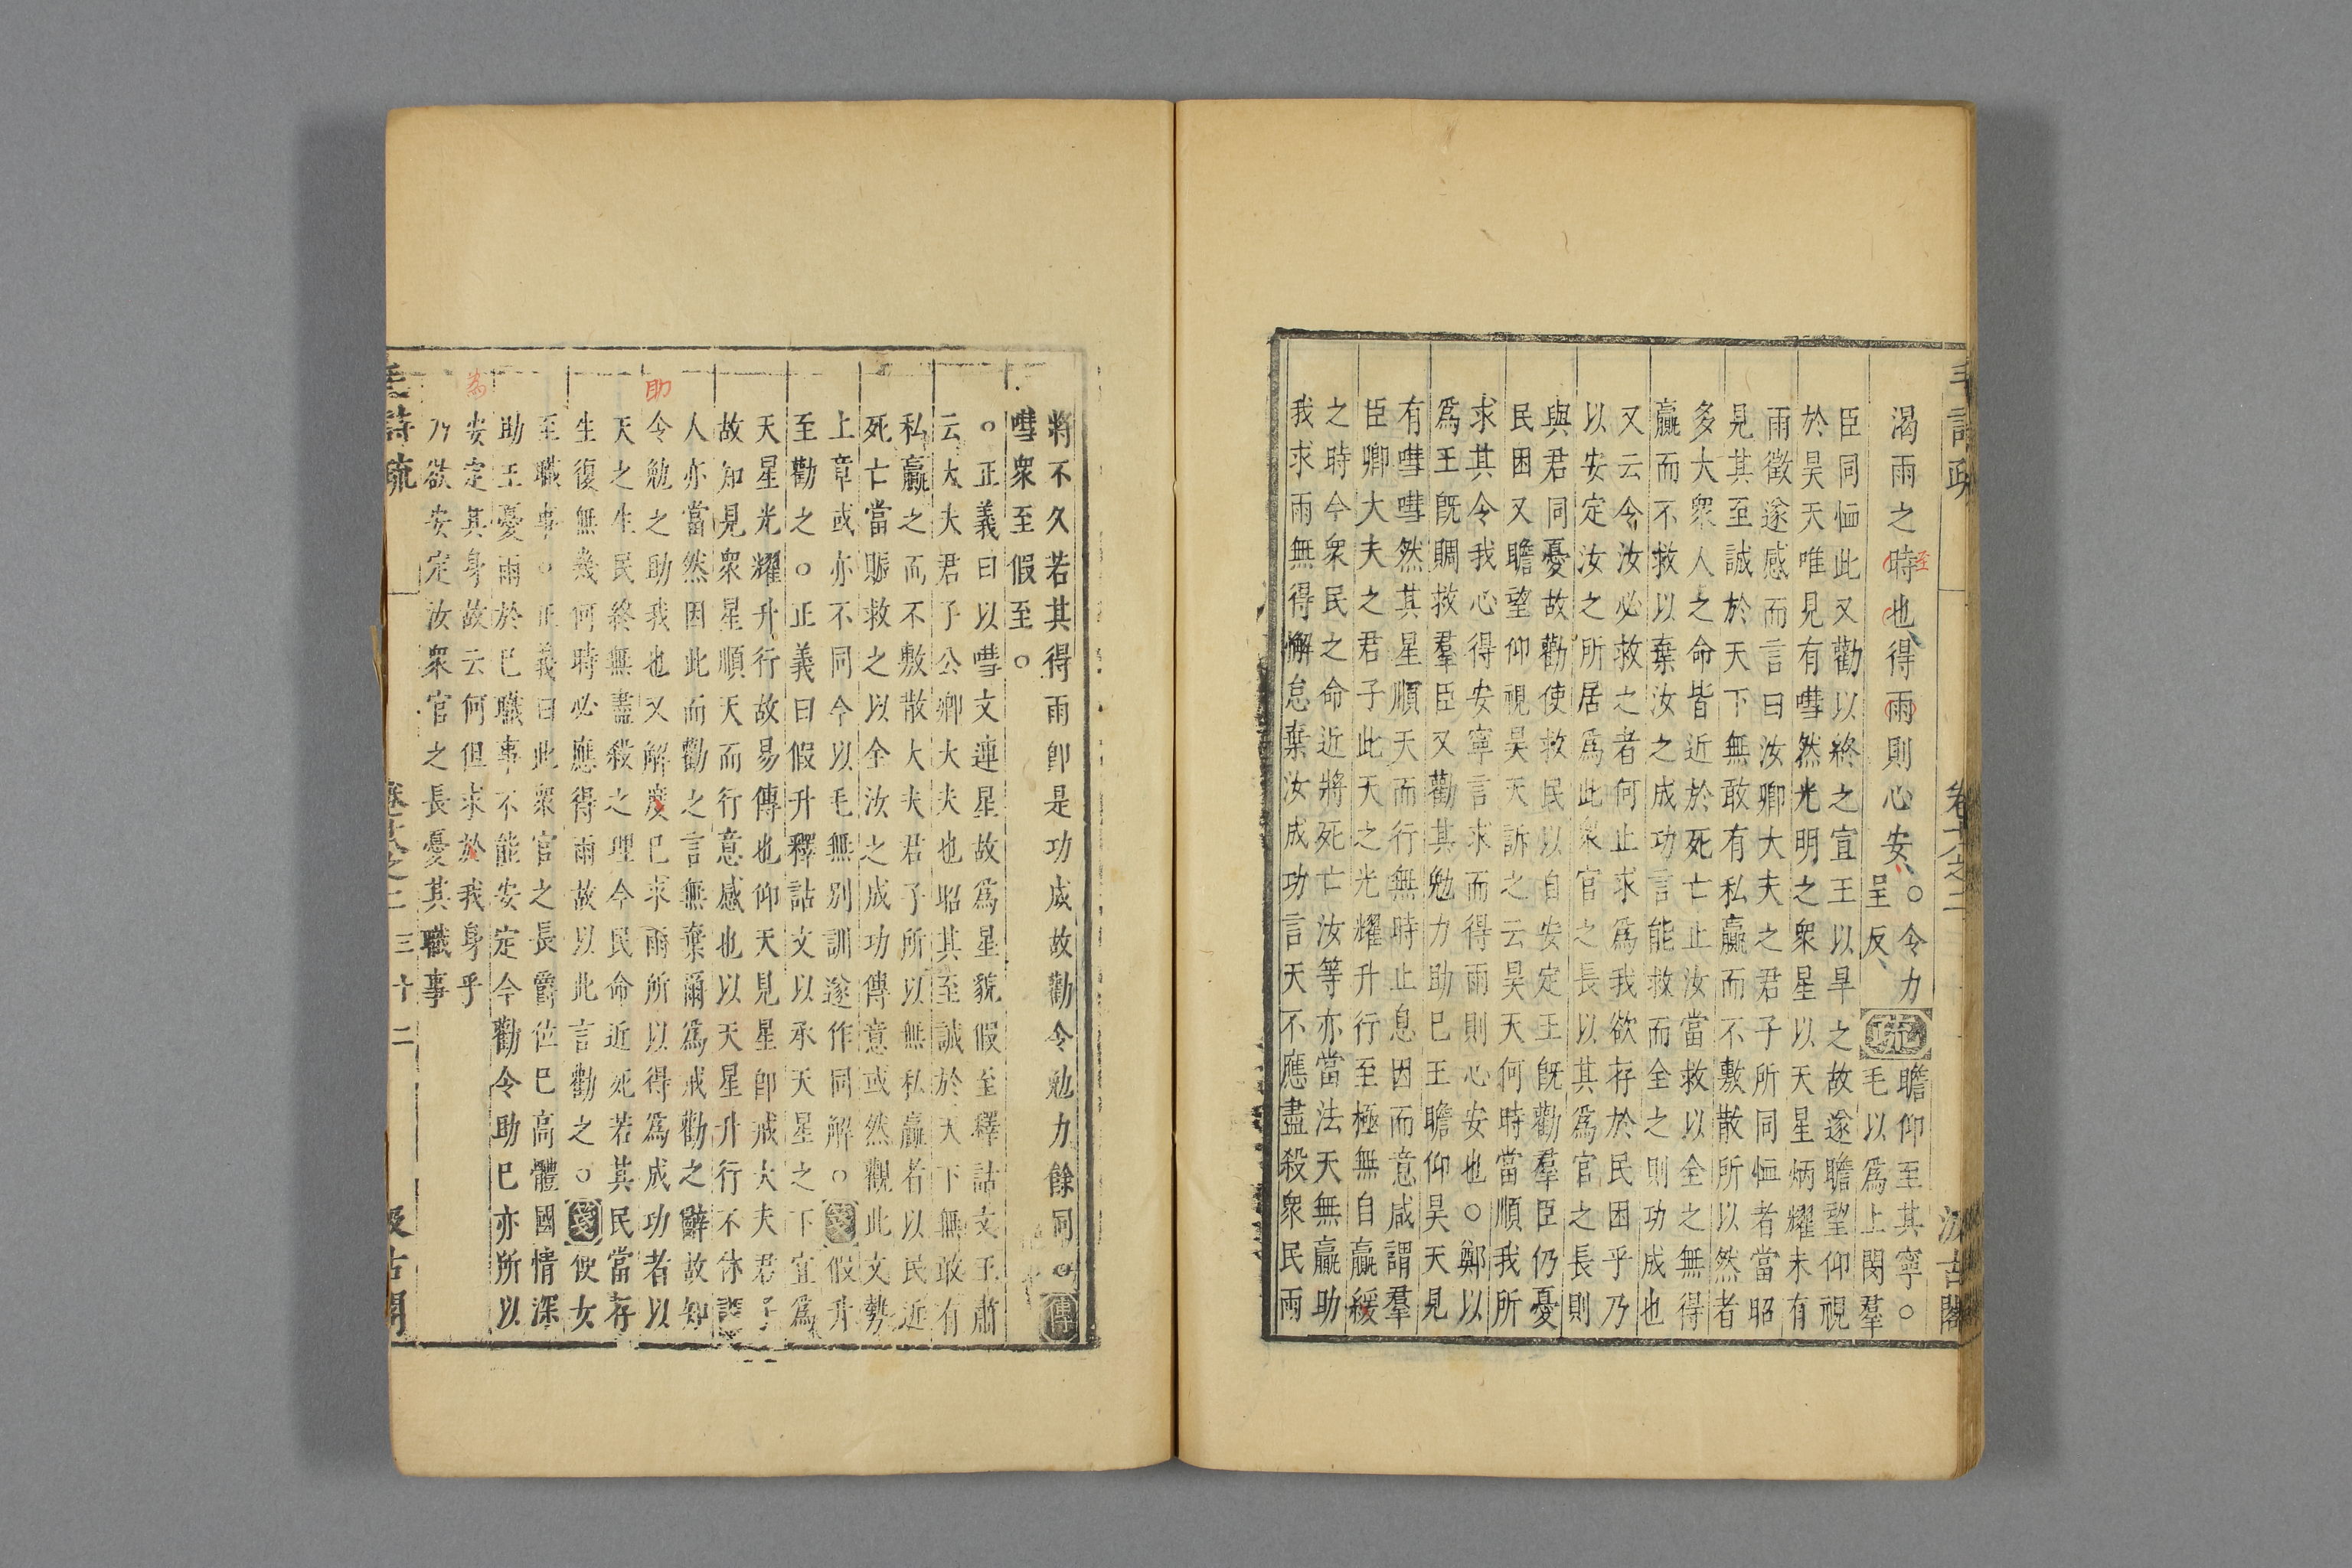 毛詩疏 卷十八之二 汲古閣
渴雨之時也得雨則心安、○令力呈反、疏瞻仰至其寧○毛以爲上閔羣
至
臣同恤此又勸以終之宜王以旱之故遂瞻望仰視
於昊天唯見有嘒然光明之衆星以天星炳耀未有
雨徵遂感而言曰汝卿大夫之君子所同恤者當昭
見其至誠於天下無敢有私贏而不敷散所以然者
多大衆人之命皆近於死亡止汝當救以全之無得
贏而不救以棄汝之成功言能救而全之則功成也
又云令汝必救之者何止求爲我欲存於民困乎乃
以安定汝之所居爲此衆官之長以其爲官之長則
與君同憂故勸使救民以自安定王旣勸羣臣仍憂
民困又瞻望仰視昊天訴之云昊天何時當順我所
求其令我心得安寧言求而得雨則心安也○鄭以
爲王旣賙救羣臣又勸其勉力助巳王瞻仰昊天見
有嘒嘒然其星順天而行無時止息因而意感謂羣
臣卿大夫之君子此天之光耀升行至極無自贏緩
之時今衆民之命近將死亡汝等亦當法天無贏助
我求雨無得懈怠棄汝成功言天不應盡殺衆民雨
將不久若其得雨卽是功成故勸令勉力餘同○傳
嘒衆至假至○
○正義曰以嘒文連星故爲星貌假至釋詁文王肅
云大夫君子公卿大夫也昭其至誠於天下無敢有
私贏之而不敷散大夫君子所以無私贏者以民近
死亡當賑救之以全汝之成功傳意或然觀此文勢
上章或亦不同今以毛無別訓遂作同解○箋假升
至勸之○正義曰假升釋詁文以承天星之下宜爲
天星光耀升行故易傳也仰天見星卽戒大夫君子
故知見衆星順天而行意感也以天星升行不休
人亦當然因此而勸之言無棄爾爲戒勸之辭故知
助
令勉之助我也又解廢巳求雨所以得爲成功者以
天之生民終無盡殺之理今民命近死若其民當存
生復無幾何時必應得雨故以此言勸之○箋使女
至職事○正義曰此衆官之長爵位巳高體國情深
助王憂雨於巳職事不能安定今勸令助巳亦所以
爲
安定其身故云何但求於我身乎
乃欲安定汝衆官之長憂其職事
毛詩疏 卷十八之二 三十二 汲古閣